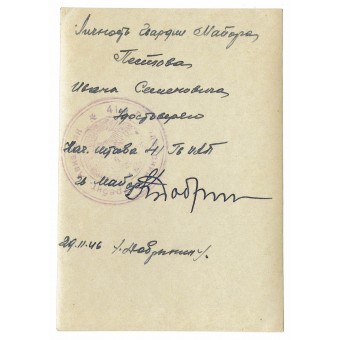 Личность Гвардии Майора
Пестова
Ивана Семеновича
Удостоверяю
Нач. штаба 41 Гв ИАП
Гв. Майор
29.11.46